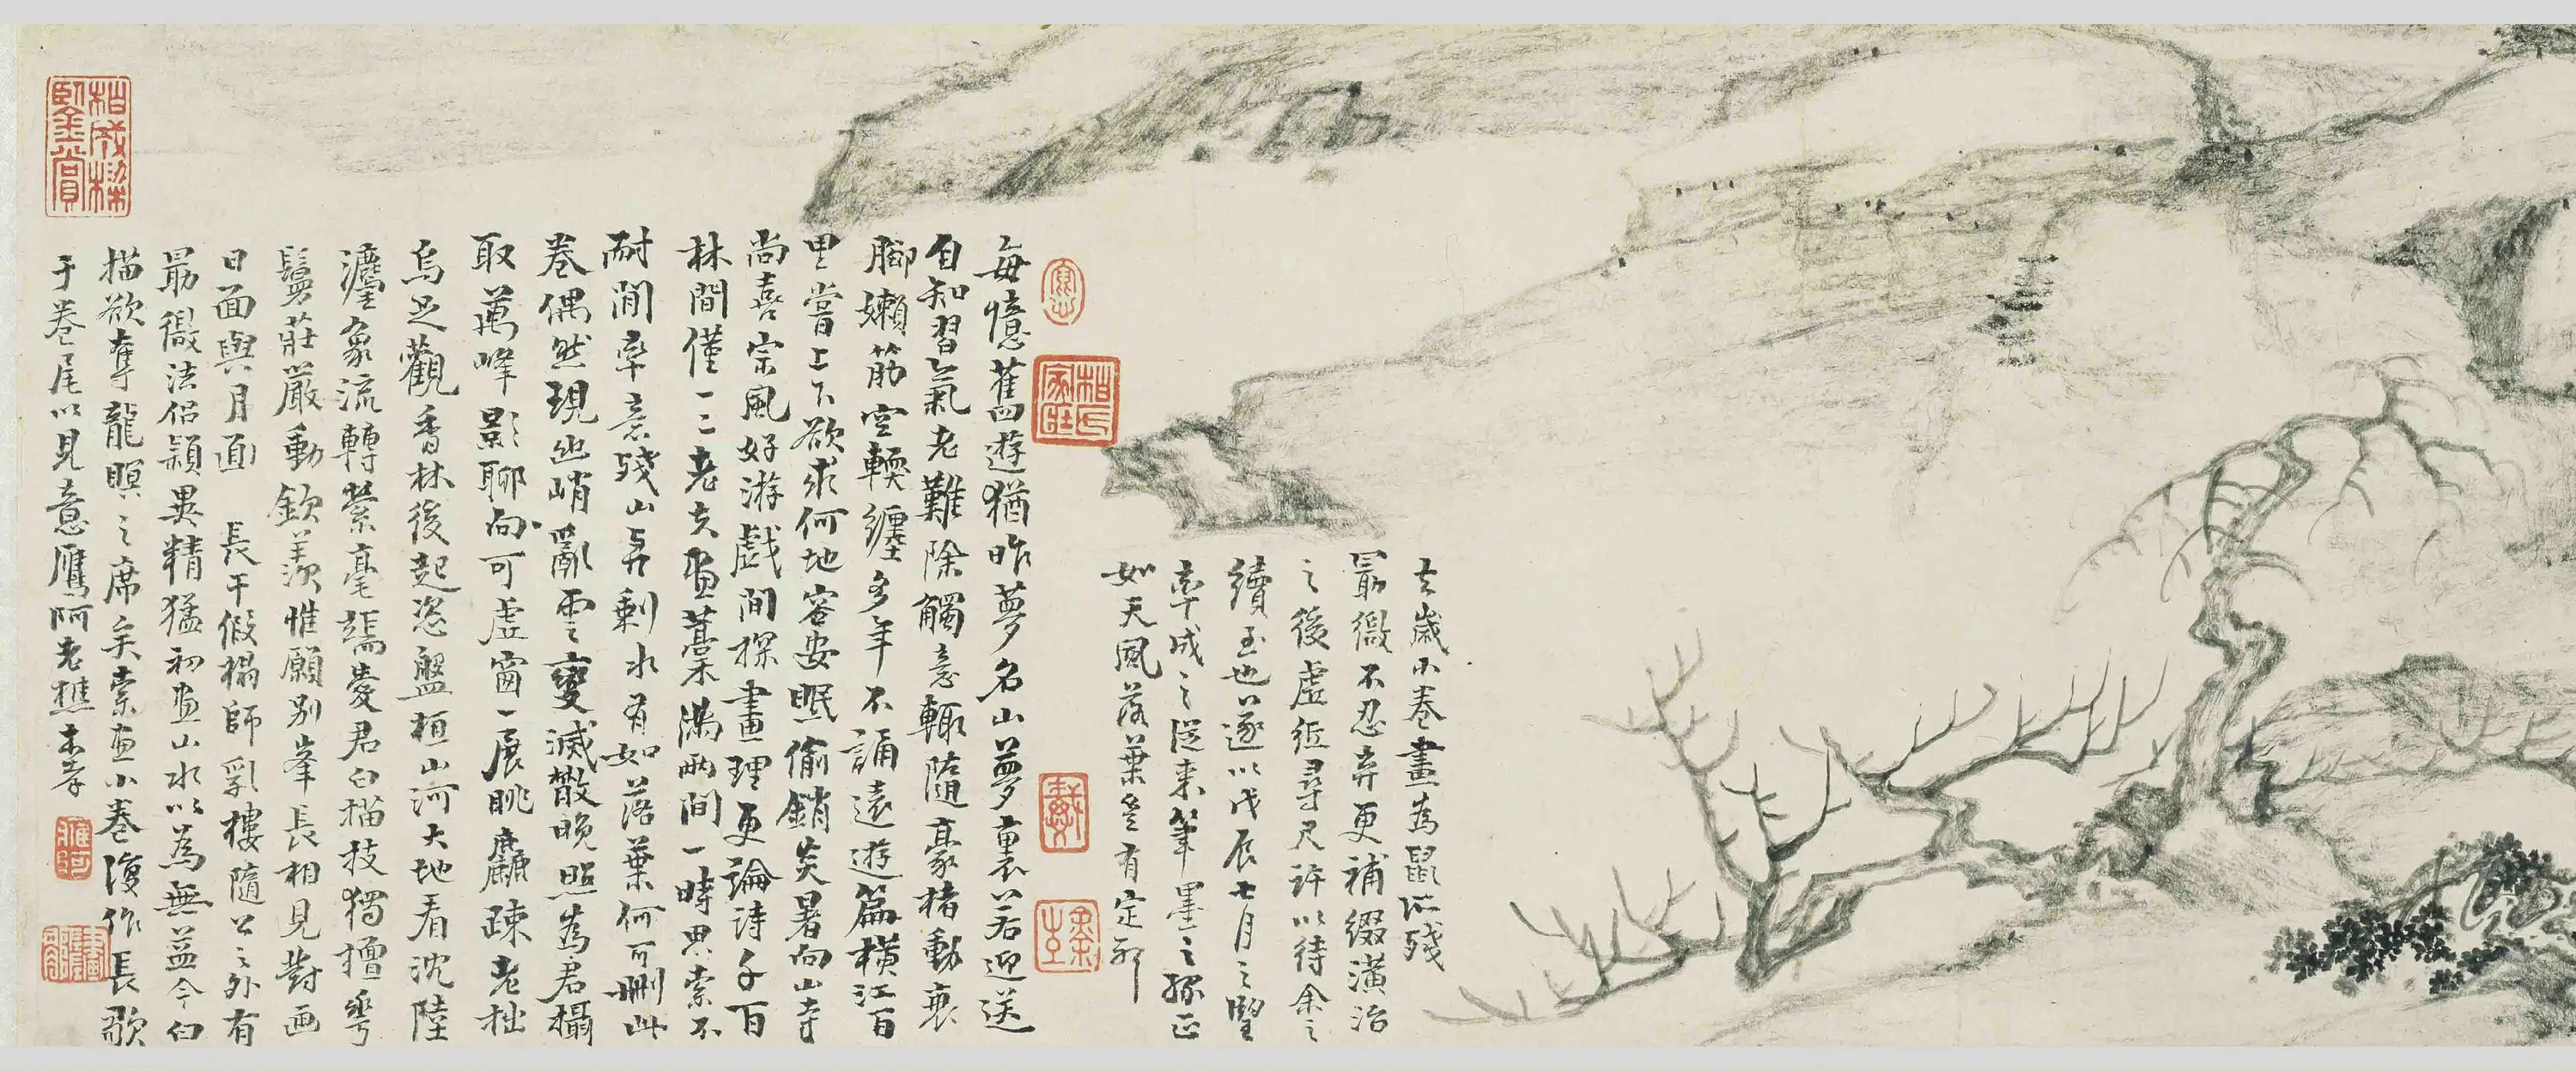 去歲小卷畫為鼠所殘
最緻不忍棄更補綴潢治
之後虛紙尋尺許以待余之
續至也遂以戊辰七月之望
率成之從來筆墨之緣正
如天風落葉豈有定耶
每憶舊四遊猶昨夢名山夢裏若迎送
自知習氣老難除觸意輒隨豪楮動衰
腳嬾筋空輭纏多年不誦遠遊篇橫江百
里嘗上下欲求何地容安眠偷銷炎暑向山寺
尚喜宗風好游戲間探畫理更論詩千百
林間僅一二老夫畫藁滿兩間一時思索不
耐閒率意殘山與剩水有如落葉何可刪此
卷偶然現幽峭亂雲變滅散晚照為君攝
取萬峰影聊向可虛窗一展眺麤疎老拙
烏足觀香林後起恣盤桓山河大地看沈陸
灋象流轉縈毫端愛君白描技獨擅雩
鬘莊嚴動欽羨惟願別峯長相見對画
日面與月面 長干假榻師乳樓隨公之外有
最緻法侶穎異精猛初畫山水以為無益今白
描欲奪龍瞑之席矣索畫小卷復作長歌
于卷尾以見意鷹阿老樵本孝
鷹阿